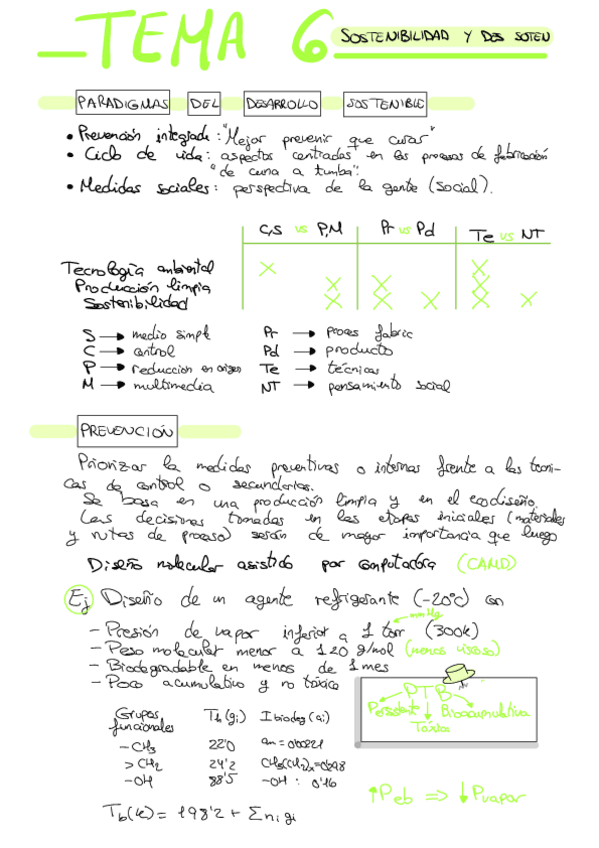 TEMA 6 SOSTENIBILIDAD Y DES SOTEN
PARADIGMAS DEL DESARROLLO SOSTENIBLE
• Prevención integrada: "Mejor prevenir que curar"
• Ciclo de vida: aspectos centrados en los procesos de fabricación
"de cuna a tumba".
• Medidas sociales: perspectiva de la gente (social).
C,S vs P,M Pr vs Pd Te vs NT
Tecnología ambiental X X
Producción limpia X X X
Sostenibilidad X X X X X
S → medio simple Pr → proces fabric
C → control Pd → producto
P → reducción en origen Te → técnicas
M → multimedia NT → pensamiento social
PREVENCIÓN
Priorizar la medidas preventivas o internas frente a las técni-
cas de control o secundarias.
Se basa en una producción limpia y en el ecodiseño.
Las decisiones tomadas en las etapas iniciales (materiales
y rutas de proceso) serán de mayor importancia que luego
Diseño molecular asistido por computadora (CAMD)
Ej Diseño de un agente refrigerante (-20°C) con
mmHg
– Presión de vapor inferior a 1 torr (300K)
– Peso molecular menor a 120 g/mol (menos viscoso)
– Biodegradable en menos de 1 mes
– Poco acumulativo y no tóxico
PTB
Persistente Bioacumulativa
Tóxica
Grupos Tb(gi) I biodeg (ai)
funcionales
-CH3 22'0
>CH2 24'2
-OH 88'5 -OH : 0'16
↑Peb ⇒ ↓Pvapor
Tb(K) = 198'2 + Σni gi